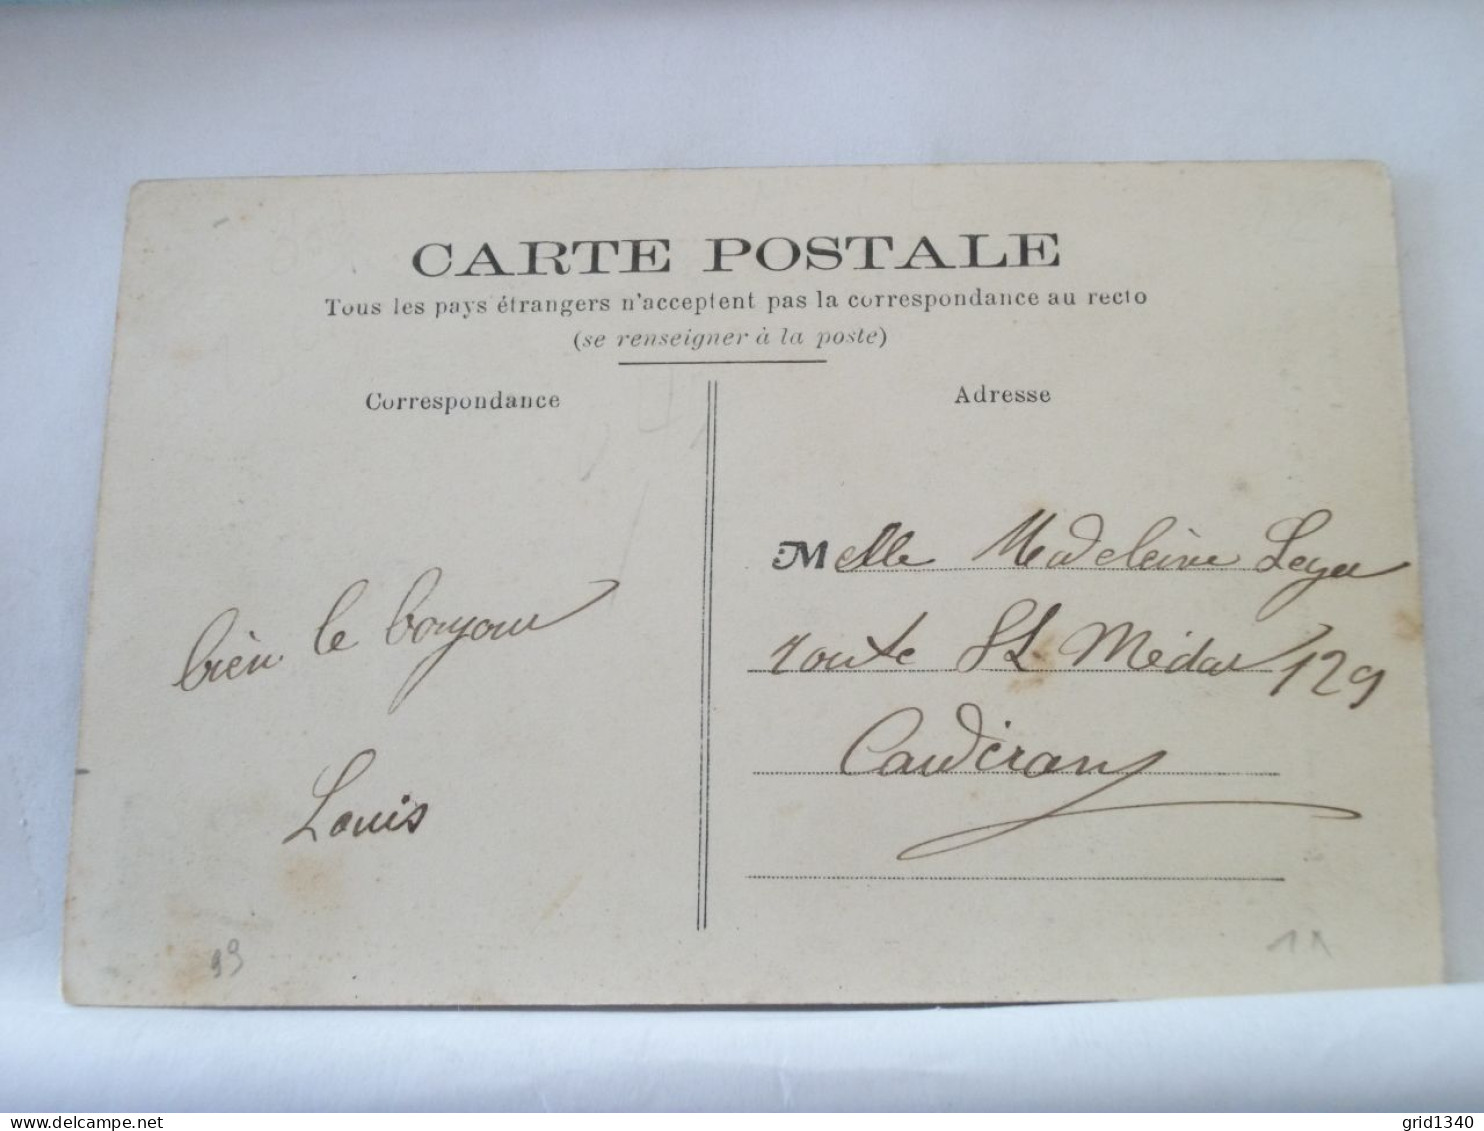 CARTE POSTALE
Tous les pays étrangers n'acceptent pas la correspondance au recto
(se renseigner à la poste)
Correspondance
Adresse
bien le bonjour
Louis
Melle Madeleine Leger
route St Médar 129
Caudéran
99
11
grid1340